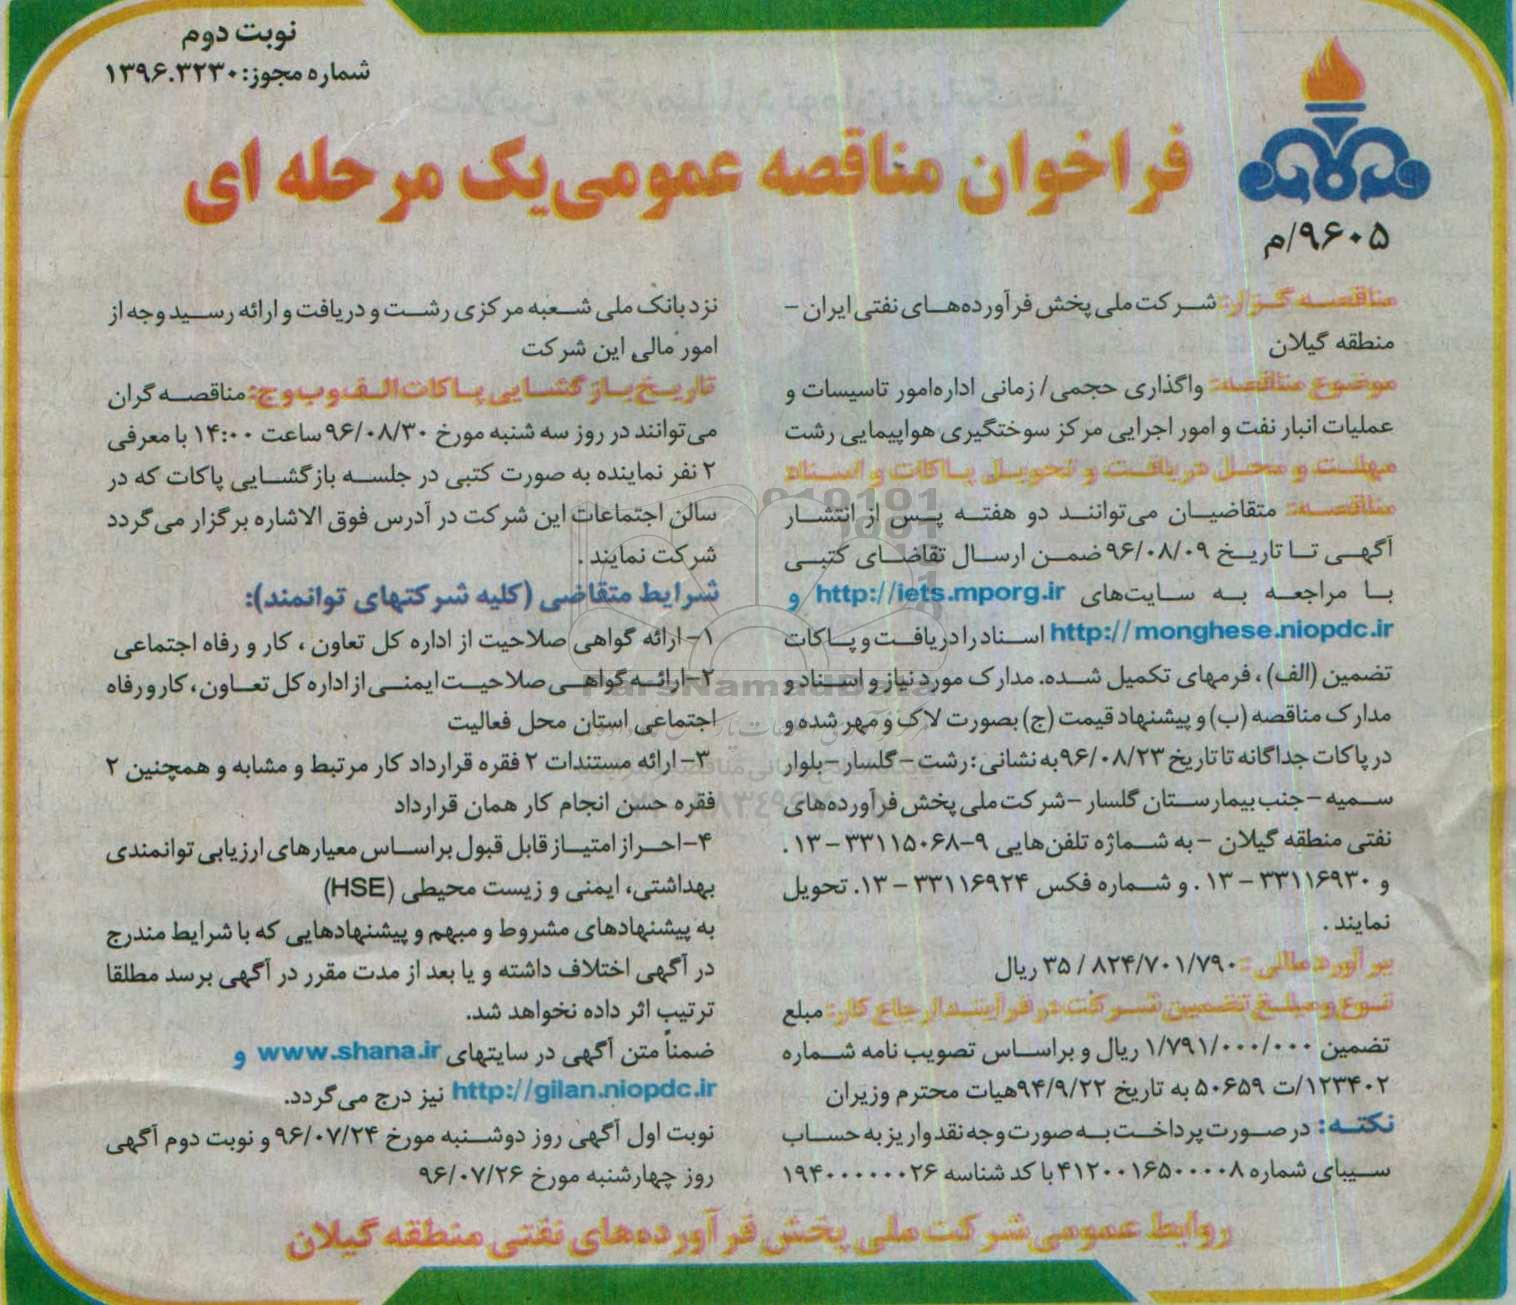 نوبت دوم
شماره مجوز: ۱۳۹۶.۳۲۳۰
فراخوان مناقصه عمومی یک مرحله ای
۹۶۰۵/م
مناقصه گزار: شرکت ملی پخش فرآورده‌های نفتی ایران –
منطقه گیلان
موضوع مناقصه: واگذاری حجمی/ زمانی اداره‌امور تاسیسات و
عملیات انبار نفت و امور اجرایی مرکز سوختگیری هواپیمایی رشت
مهلت و محل دریافت و تحویل پاکات و اسناد
مناقصه: متقاضیان می‌توانند دو هفته پس از انتشار
آگهی تا تاریخ ۹۶/۰۸/۰۹ ضمن ارسال تقاضای کتبی
با مراجعه به سایت‌های http://iets.mporg.ir و
http://monghese.niopdc.ir اسناد را دریافت و پاکات
تضمین (الف)، فرمهای تکمیل شده. مدارک مورد نیاز و اسناد و
مدارک مناقصه (ب) و پیشنهاد قیمت (ج) بصورت لاک و مهر شده و
در پاکات جداگانه تا تاریخ ۹۶/۰۸/۲۳ به نشانی: رشت – گلسار – بلوار
سمیه – جنب بیمارستان گلسار – شرکت ملی پخش فرآورده‌های
نفتی منطقه گیلان – به شماژه تلفن‌هایی ۹–۳۳۱۱۵۰۶۸ – ۱۳ .
و ۳۳۱۱۶۹۳۰ – ۱۳ . و شماره فکس ۳۳۱۱۶۹۲۴ – ۱۳. تحویل
نمایند .
برآورد مالی : ۳۵ / ۸۲۴/۷۰۱/۷۹۰ ریال
نوع و مبلغ تضمین شرکت در فرآیند ارجاع کار: مبلغ
تضمین ۱/۷۹۱/۰۰۰/۰۰۰ ریال و براساس تصویب نامه شماره
۱۲۳۴۰۲/ت ۵۰۶۵۹ به تاریخ ۹۴/۹/۲۲ هیات محترم وزیران
نکته: در صورت پرداخت به صورت وجه نقد واریز به حساب
سیبای شماره ۴۱۲۰۰۱۶۵۰۰۰۰۸ با کد شناسه ۱۹۴۰۰۰۰۰۰۰۲۶
نزد بانک ملی شعبه مرکزی رشت و دریافت و ارائه رسید وجه از
امور مالی این شرکت
تاریخ بازگشایی پاکات الف و ب و ج: مناقصه گران
می‌توانند در روز سه شنبه مورخ ۹۶/۰۸/۳۰ ساعت ۱۴:۰۰ با معرفی
۲ نفر نماینده به صورت کتبی در جلسه بازگشایی پاکات که در
سالن اجتماعات این شرکت در آدرس فوق الاشاره برگزار می‌گردد
شرکت نمایند .
شرایط متقاضی (کلیه شرکتهای توانمند):
۱– ارائه گواهی صلاحیت از اداره کل تعاون ، کار و رفاه اجتماعی
۲– ارائه گواهی صلاحیت ایمنی از اداره کل تعاون، کار و رفاه
اجتماعی استان محل فعالیت
۳– ارائه مستندات ۲ فقره قرارداد کار مرتبط و مشابه و همچنین ۲
فقره حسن انجام کار همان قرارداد
۴– احراز امتیاز قابل قبول براساس معیارهای ارزیابی توانمندی
بهداشتی، ایمنی و زیست محیطی (HSE)
به پیشنهادهای مشروط و مبهم و پیشنهادهایی که با شرایط مندرج
در آگهی اختلاف داشته و یا بعد از مدت مقرر در آگهی برسد مطلقا
ترتیب اثر داده نخواهد شد.
ضمناً متن آگهی در سایتهای www.shana.ir و
http://gilan.niopdc.ir نیز درج می‌گردد.
نوبت اول آگهی روز دوشنبه مورخ ۹۶/۰۷/۲۴ و نوبت دوم آگهی
روز چهارشنبه مورخ ۹۶/۰۷/۲۶
روابط عمومی شرکت ملی پخش فرآورده‌های نفتی منطقه گیلان
ParsNamadData